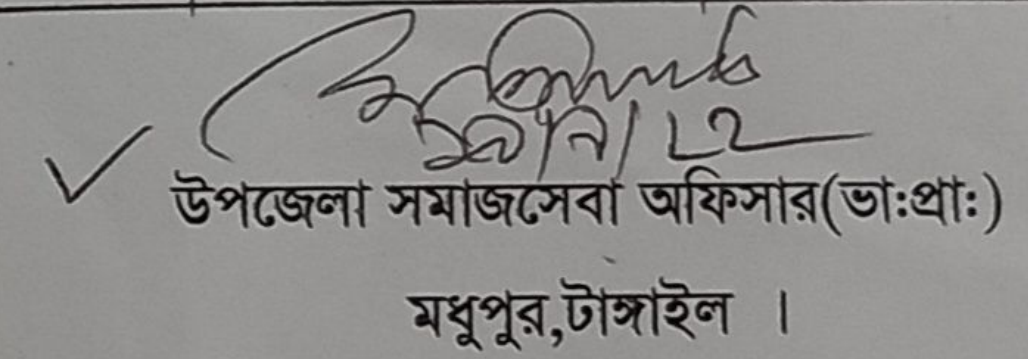 উপজেলা সমাজসেবা অফিসার(ভা:প্রা:)
মধুপুর,টাঙ্গাইল ।